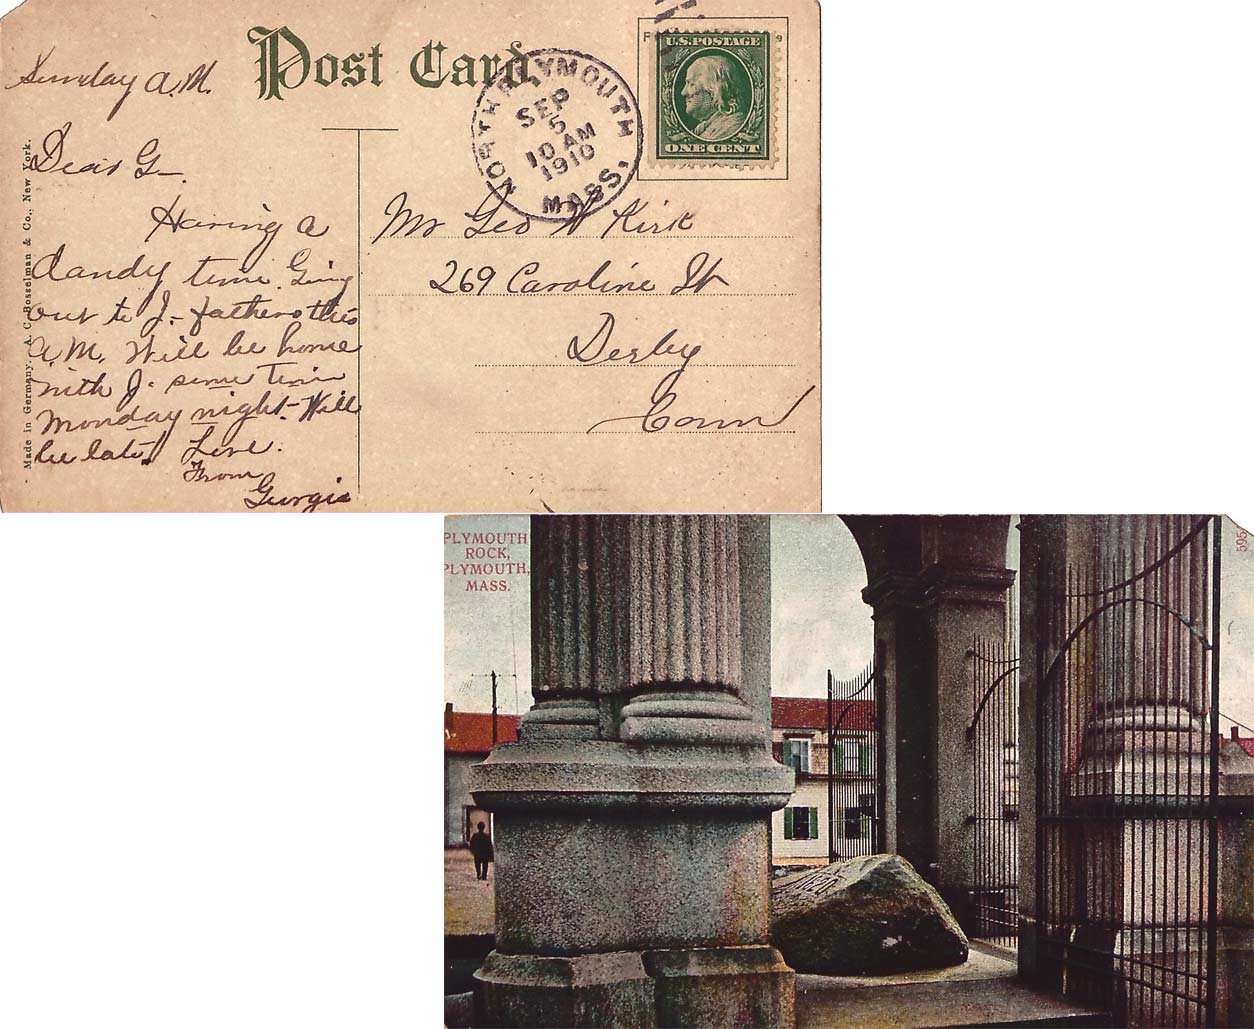 Post Card
Sunday A.M.
NORTH PLYMOUTH
SEP
5
10 AM
1910
MASS.
U.S. POSTAGE
ONE CENT
Made in Germany. A. C. Bosselman & Co., New York.
Dear G—.
Having a
dandy time. Going
out to J— fathers this
A.M. Will be home
with J. some time
Monday night. Will
be late! Love.
From
Georgie
Mr Geo W Kirk
269 Caroline St
Derby
Conn
PLYMOUTH
ROCK,
PLYMOUTH,
MASS.
595
1620